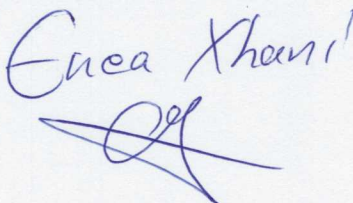 Enea Xhani